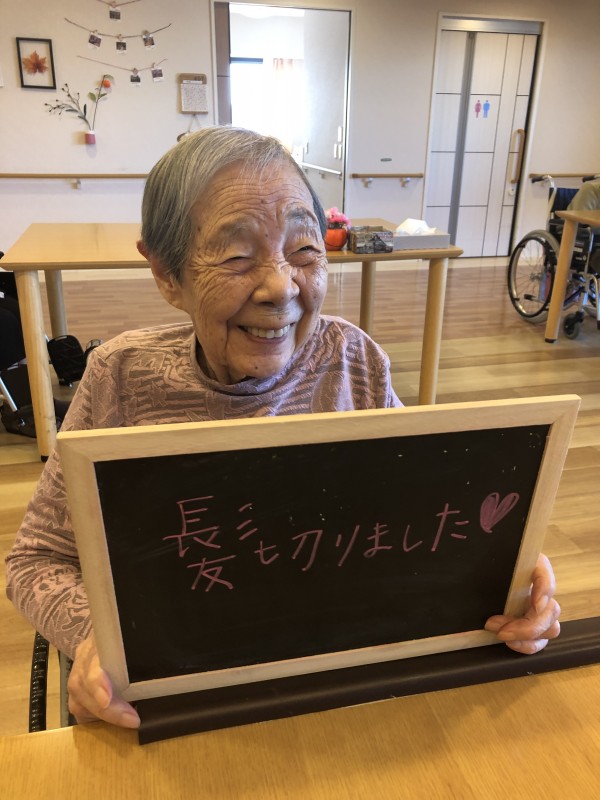 髪も切りました♡